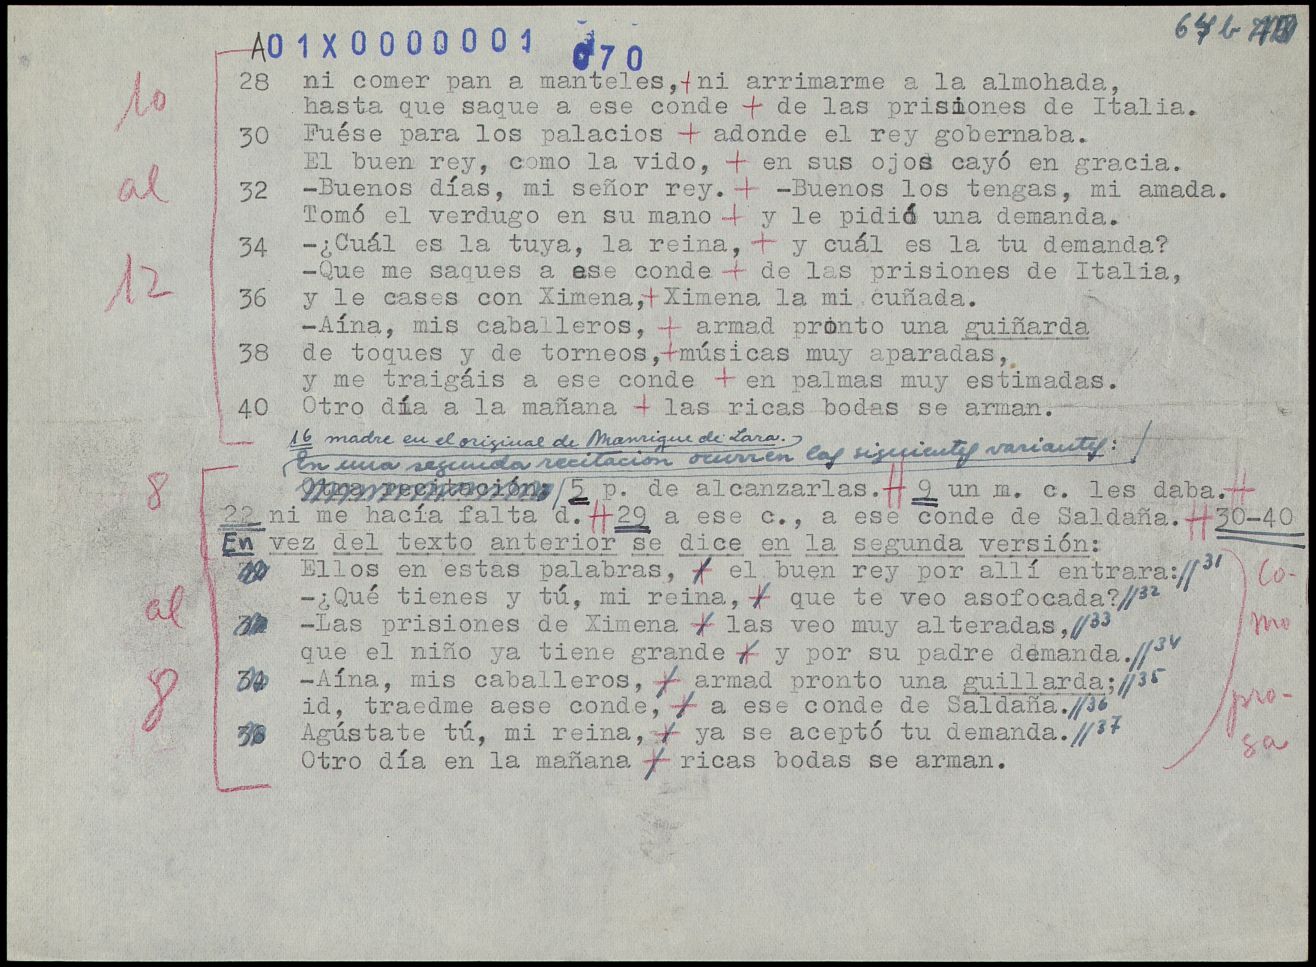 A01X00000001 070
67 b
10 al 12
28 ni comer pan a manteles,+ni arrimarme a la almohada,
hasta que saque a ese conde + de las prisiones de Italia.
30 Fuése para los palacios + adonde el rey gobernaba.
El buen rey, como la vido, + en sus ojos cayó en gracia.
32 -Buenos días, mi señor rey. + -Buenos los tengas, mi amada.
Tomó el verdugo en su mano + y le pidió una demanda.
34 -¿Cuál es la tuya, la reina, + y cuál es la tu demanda?
-Que me saques a ese conde + de las prisiones de Italia,
36 y le cases con Ximena,+Ximena la mi cuñada.
-Aína, mis caballeros, + armad pronto una guiñarda
38 de toques y de torneos,+músicas muy aparadas,
y me traigáis a ese conde + en palmas muy estimadas.
40 Otro día a la mañana + las ricas bodas se arman.
16 madre en el original de Manrique de Lara.
En una segunda recitación ocurren las siguientes variantes:
8 al 8
5 p. de alcanzarlas.# 9 un m. c. les daba.#
22 ni me hacía falta d.# 29 a ese c., a ese conde de Saldaña.# 30-40
En vez del texto anterior se dice en la segunda versión:
Ellos en estas palabras, + el buen rey por allí entrara://31
-¿Qué tienes y tú, mi reina, + que te veo asofocada?//32
-Las prisiones de Ximena + las veo muy alteradas,//33
que el niño ya tiene grande + y por su padre demanda.//34
34 -Aína, mis caballeros, + armad pronto una guillarda;//35
id, traedme aese conde, + a ese conde de Saldaña.//36
Agústate tú, mi reina, + ya se aceptó tu demanda.//37
Otro día en la mañana + ricas bodas se arman.
Co-
mo
pro-
sa